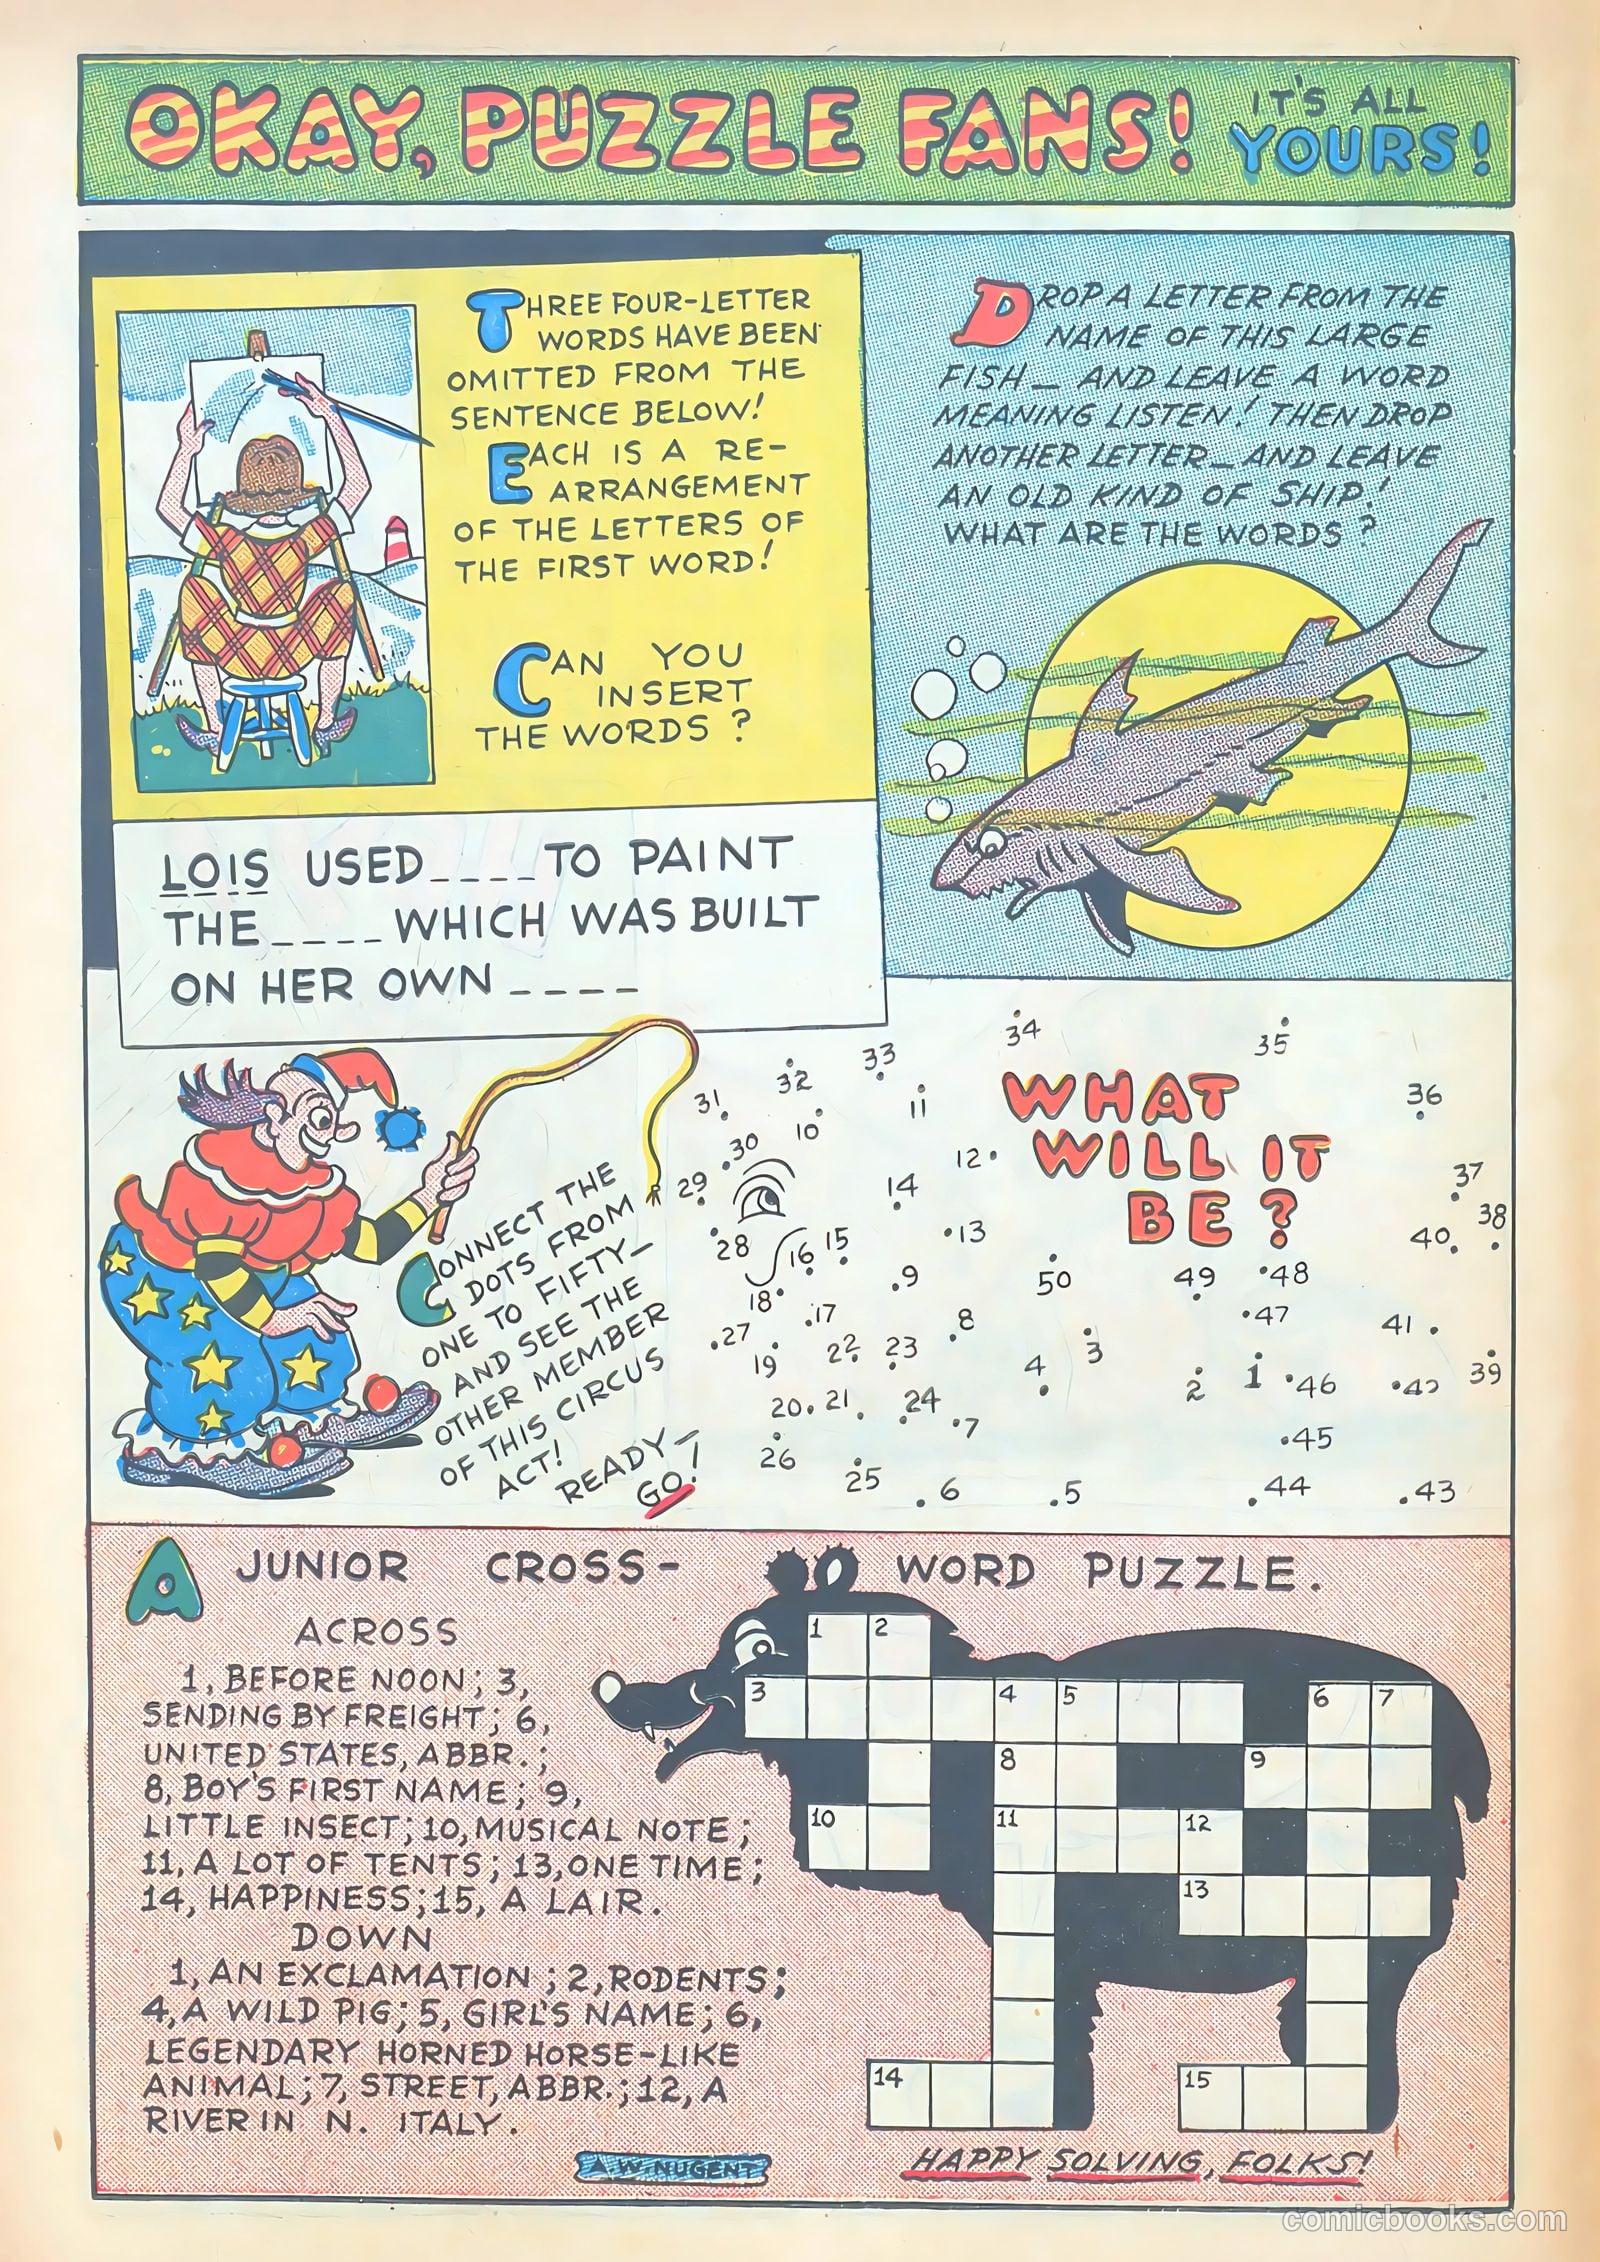 OKAY, PUZZLE FANS!
IT'S ALL
YOURS!
THREE FOUR-LETTER
WORDS HAVE BEEN
OMITTED FROM THE
SENTENCE BELOW!
EACH IS A RE-
ARRANGEMENT
OF THE LETTERS OF
THE FIRST WORD!
CAN YOU
INSERT
THE WORDS?
LOIS USED ____ TO PAINT
THE ____ WHICH WAS BUILT
ON HER OWN ____
DROP A LETTER FROM THE
NAME OF THIS LARGE
FISH_ AND LEAVE A WORD
MEANING LISTEN! THEN DROP
ANOTHER LETTER_AND LEAVE
AN OLD KIND OF SHIP!
WHAT ARE THE WORDS?
CONNECT THE
DOTS FROM
ONE TO FIFTY—
AND SEE THE
OTHER MEMBER
OF THIS CIRCUS
ACT!
READY—
GO!
WHAT
WILL IT
BE?
34
35
33
32
31
11
36
10
30
12
37
29
14
38
28
16
15
13
40
9
50
49
48
18
17
47
8
41
27
19
22
23
4
3
2
1
46
42
39
20
21
24
7
45
26
25
6
5
44
43
A JUNIOR CROSS-WORD PUZZLE.
ACROSS
1, BEFORE NOON; 3,
SENDING BY FREIGHT; 6,
UNITED STATES, ABBR.;
8, BOY'S FIRST NAME; 9,
LITTLE INSECT; 10, MUSICAL NOTE;
11, A LOT OF TENTS; 13, ONE TIME;
14, HAPPINESS; 15, A LAIR.
DOWN
1, AN EXCLAMATION; 2, RODENTS;
4, A WILD PIG; 5, GIRL'S NAME; 6,
LEGENDARY HORNED HORSE-LIKE
ANIMAL; 7, STREET, ABBR.; 12, A
RIVER IN N. ITALY.
1 2
3 4 5 6 7
8 9
10 11 12
13
14 15
A.W. NUGENT
HAPPY SOLVING, FOLKS!
comicbooks.com